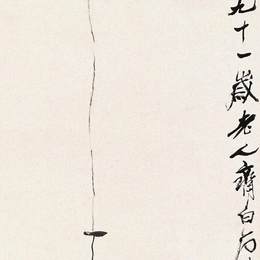 九十一歲老人齊白石